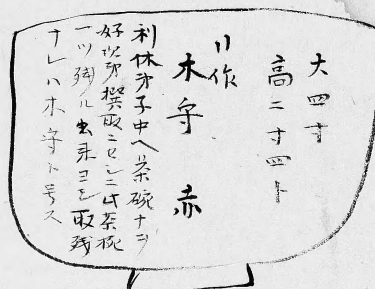 大四寸
高二寸四ト
〃作
木守 赤
利休弟子中ヘ茶碗ナラ
好次第撰取ニセシニ此茶椀
一ツ残ル出来ヨシ取残
ナレハ木守ト号ス